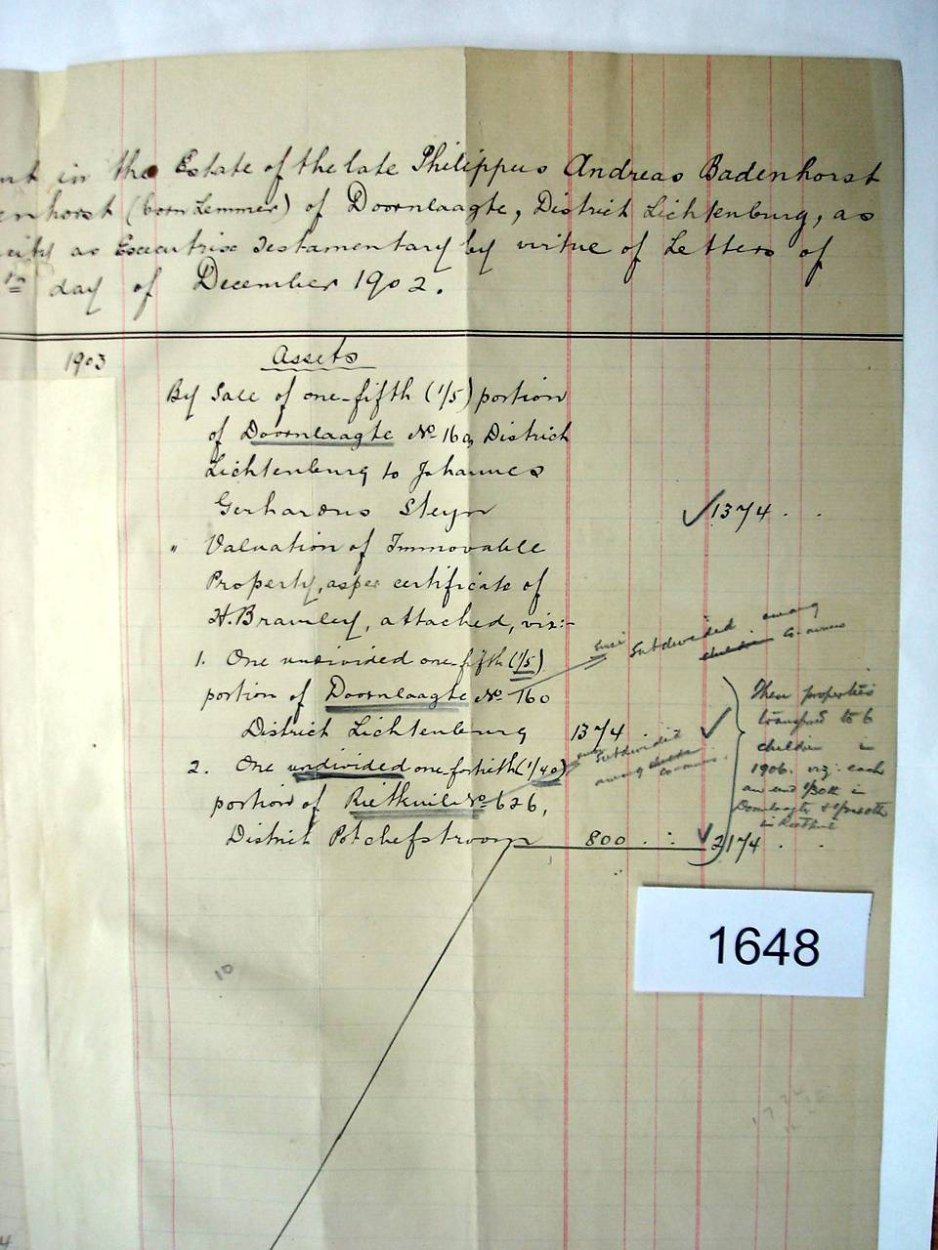 in the Estate of the late Philippus Andreas Badenhorst
enhorst (born Lemmer) of Doornlaagte, District Lichtenburg, as
city as Executrix Testamentary by virtue of Letters of
day of December 1902.
1903
Assets
By Sale of one-fifth (1/5) portion
of Doornlaagte No 160, District
Lichtenburg to Johannes
Gerhardus Steyn ✓1374 . .
" Valuation of Immovable
Property, as per certificate of
H. Bramley, attached, viz:-
subdivided among
children Co-owners
1. One undivided one-fifth (1/5)
portion of Doornlaagte No 160
District Lichtenburg 1374 ✓
subdivided
among children
Co-owners.
2. One undivided one-fortieth (1/40)
portion of Rietkuil No 626,
District Potchefstroom 800 . : ✓ 2174 . .
These properties
transfd to 6
children in
1906. viz: each
an und 1/30th in
Doornlaagte &
in Rietkuil
10
1648